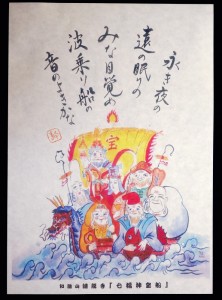 永き夜の
遠の眠りの
みな目覚め
波乗り船の
音のよきかな
宝
『七福神宝船』